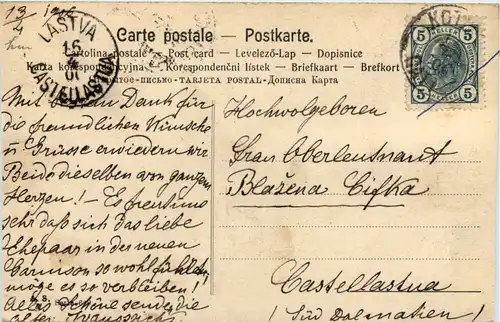 19/4 1906
Carte postale — Postkarte.
Cartolina postale — Post card — Levelező-Lap — Dopisnice
Karta korespondencyjna — Korespondenční lístek — Briefkaart — Brefkort
ПИСЬМО — TARJETA POSTAL — Дописна Карта
LASTVA
CASTELLASTUA
5 5
5 5
HELLER
Mit Dank für
die freundlichen Wünsche
u Grüsse erwiedern wir
Beide dieselben von ganzem
Herzen! — Es freut uns
sehr daß sich das liebe
Ehepaar in der neuen
Garnison so wohl fühlt,
möge es so verbleiben!
Alles Schöne sende die
alten
Hochwolgeboren
Frau Oberleutnant
Blažena Cifka
Castellastua
! Süd Dalmatien!